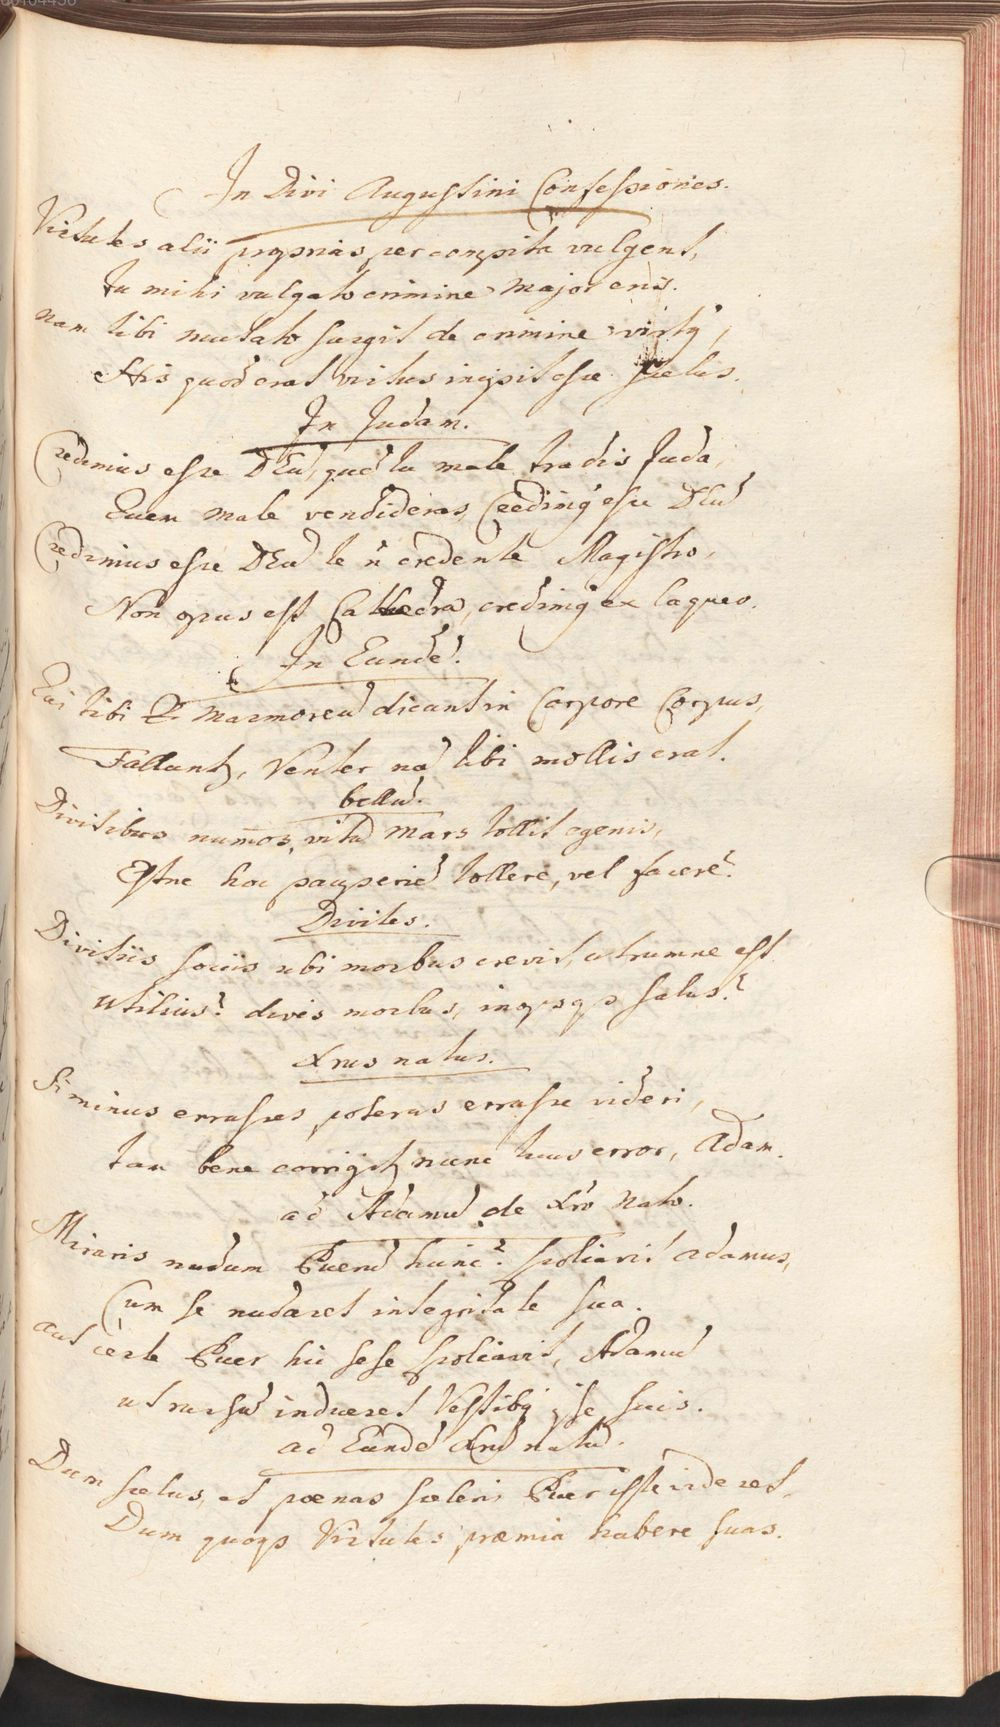 In Divi Augustini Confessiones.
Virtutes alii proprias per compita vulgent,
Tu mihi vulgato crimine major eris.
nam tibi mutato surgit de crimine virtꝰ,
His quod erat virtus incipit esse scelus.
In Judam.
Credimus esse DEū, quē tu male tradis Juda,
Quem male vendideras, Credimꝰ esse DEū
Credimus esse DEū te ñ credente Magistro,
Non opus est Cathedra, credimꝰ ex laqueo.
In Eundē.
Qui tibi marmoreū dicunt in Corpore Corpus,
Falluntr, Venter nā tibi mollis erat.
bellū.
Divitibus num̄os, vitā Mars tollit egenis,
Estne hoc pauperiē tollere, vel facere?
Divites.
Divitiis sociis ubi morbus crevit, utrumne est
Utilius? dives morbus, inopsqꝫ salus?
Xrus natus.
Si minus errasses poteras errasse videri,
tam bene corrigitr nunc tuus error, Adam.
ad Adamū de Xro Nato.
Miraris nudum Puerū hunc? spoliavit Adamus,
Cum se nudaret integritate sua.
aut certe Puer hic sese spoliavit, Adamū
ut rursū indueret Vestibꝰ ipse suis.
ad Eundē Xrū natū.
Dum scelus, et poenas sceleris Puer iste videret,
Dum quoqꝫ Virtutes praemia habere suas.